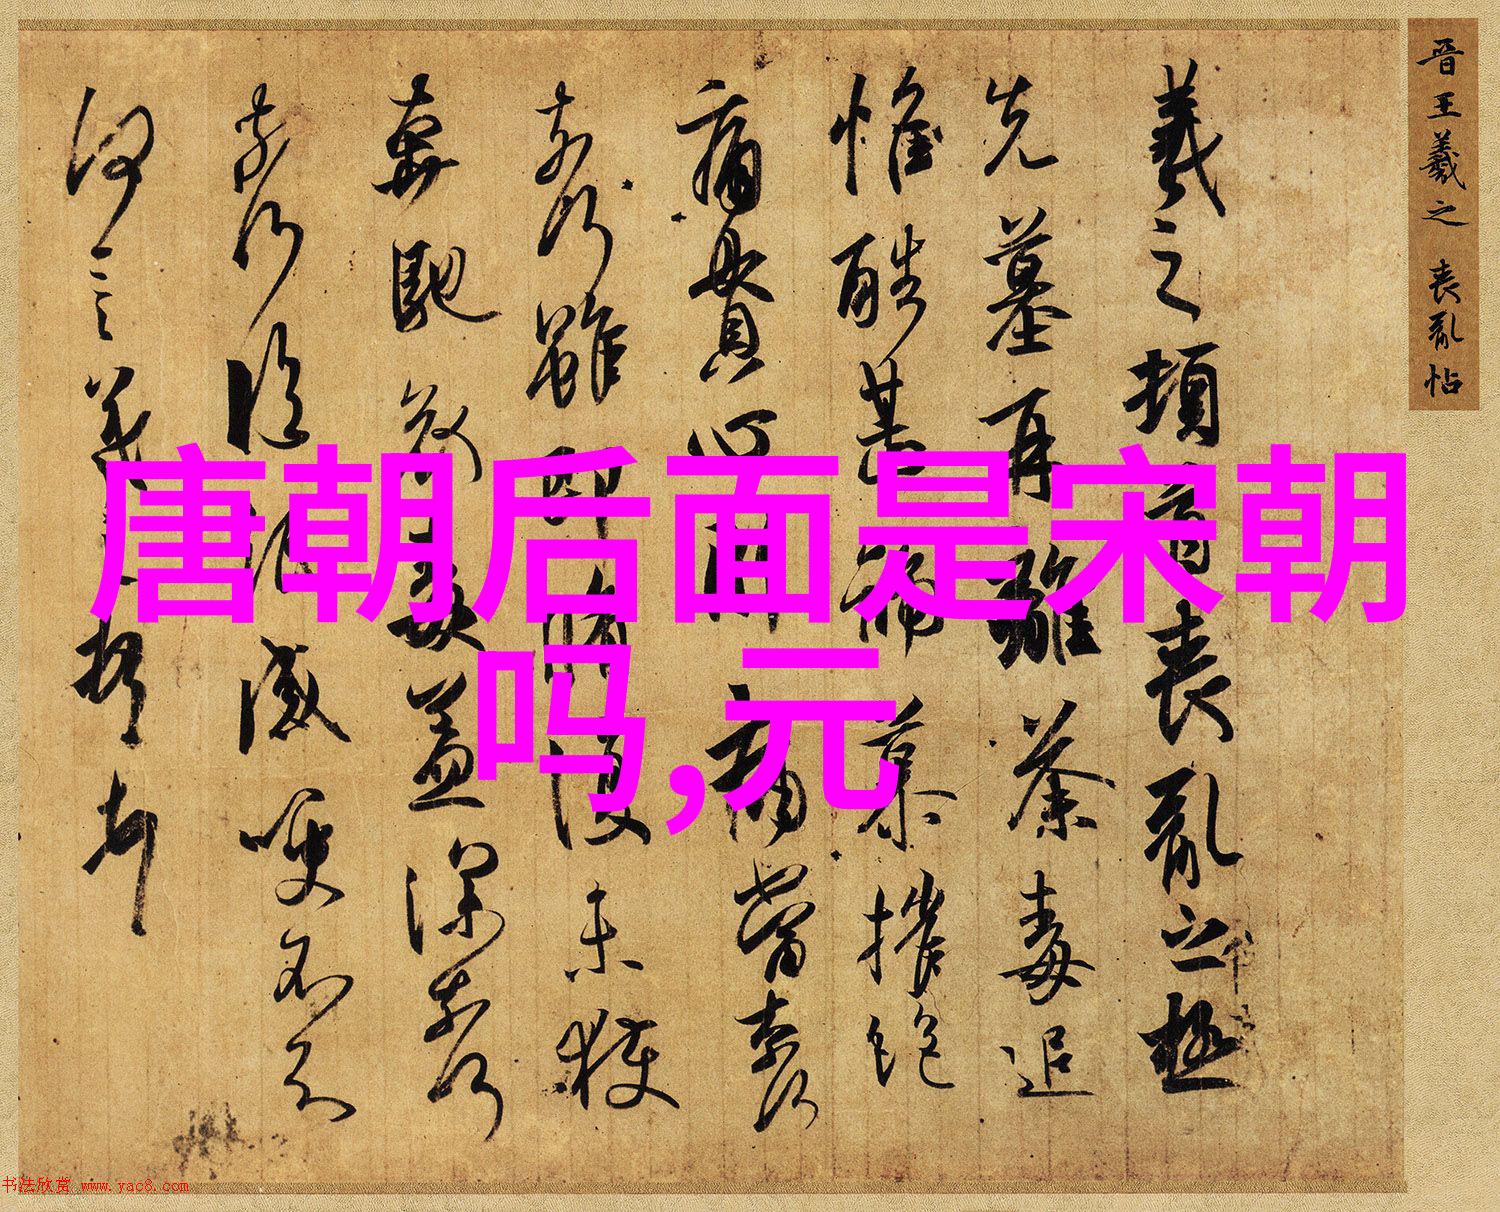 晋王羲之 丧乱帖
羲之顿首丧乱之极
先墓再离荼毒追
惟酷甚号慕摧绝
痛贯心肝痛当奈何
奈何虽即修复未获
奔驰哀毒益深奈何
奈何临纸感哽不知
何言羲之顿首
唐朝后面是宋朝
吗,元
书法欣赏 www.yac8.com